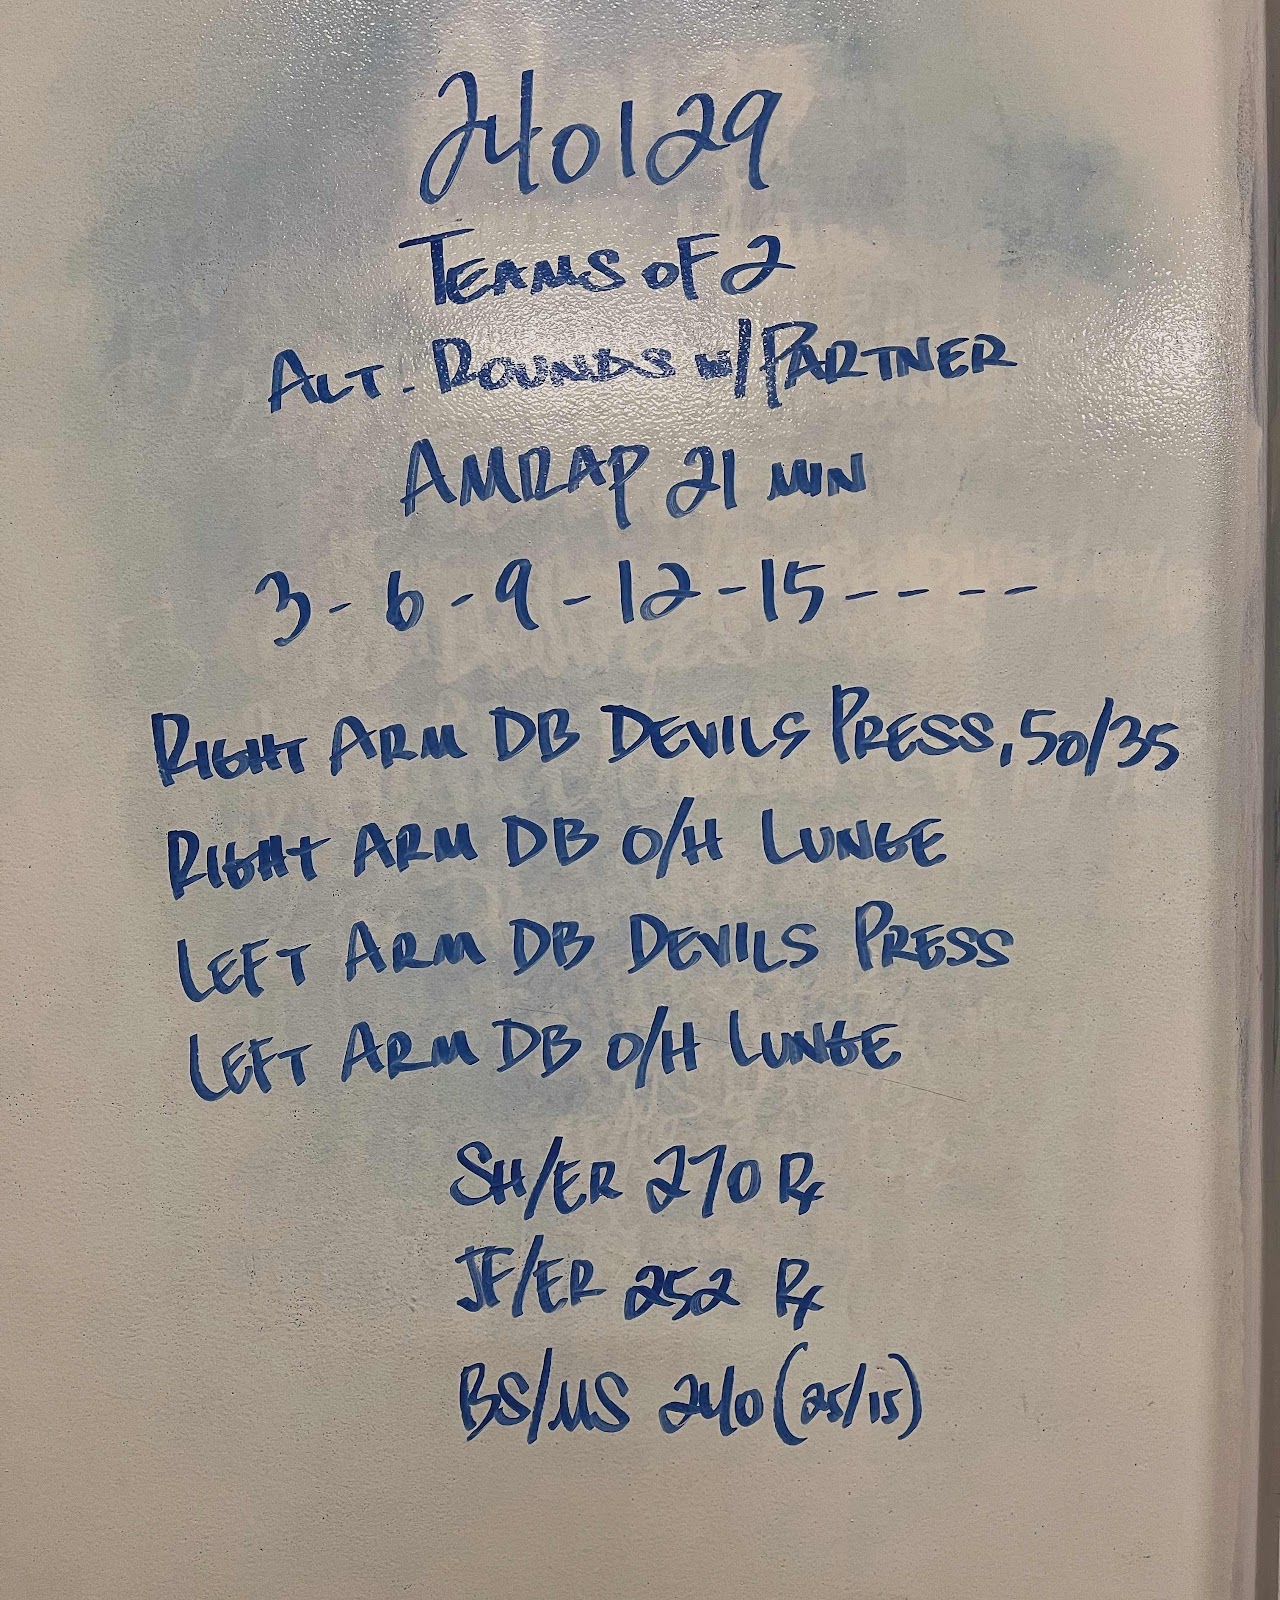 240129
TEAMS OF 2
ALT. ROUNDS W/PARTNER
AMRAP 21 MIN
3-6-9-12-15----
RIGHT ARM DB DEVILS PRESS, 50/35
RIGHT ARM DB O/H LUNGE
LEFT ARM DB DEVILS PRESS
LEFT ARM DB O/H LUNGE
SH/ER 270 Rx
JF/ER 252 Rx
BS/MS 240 (25/15)